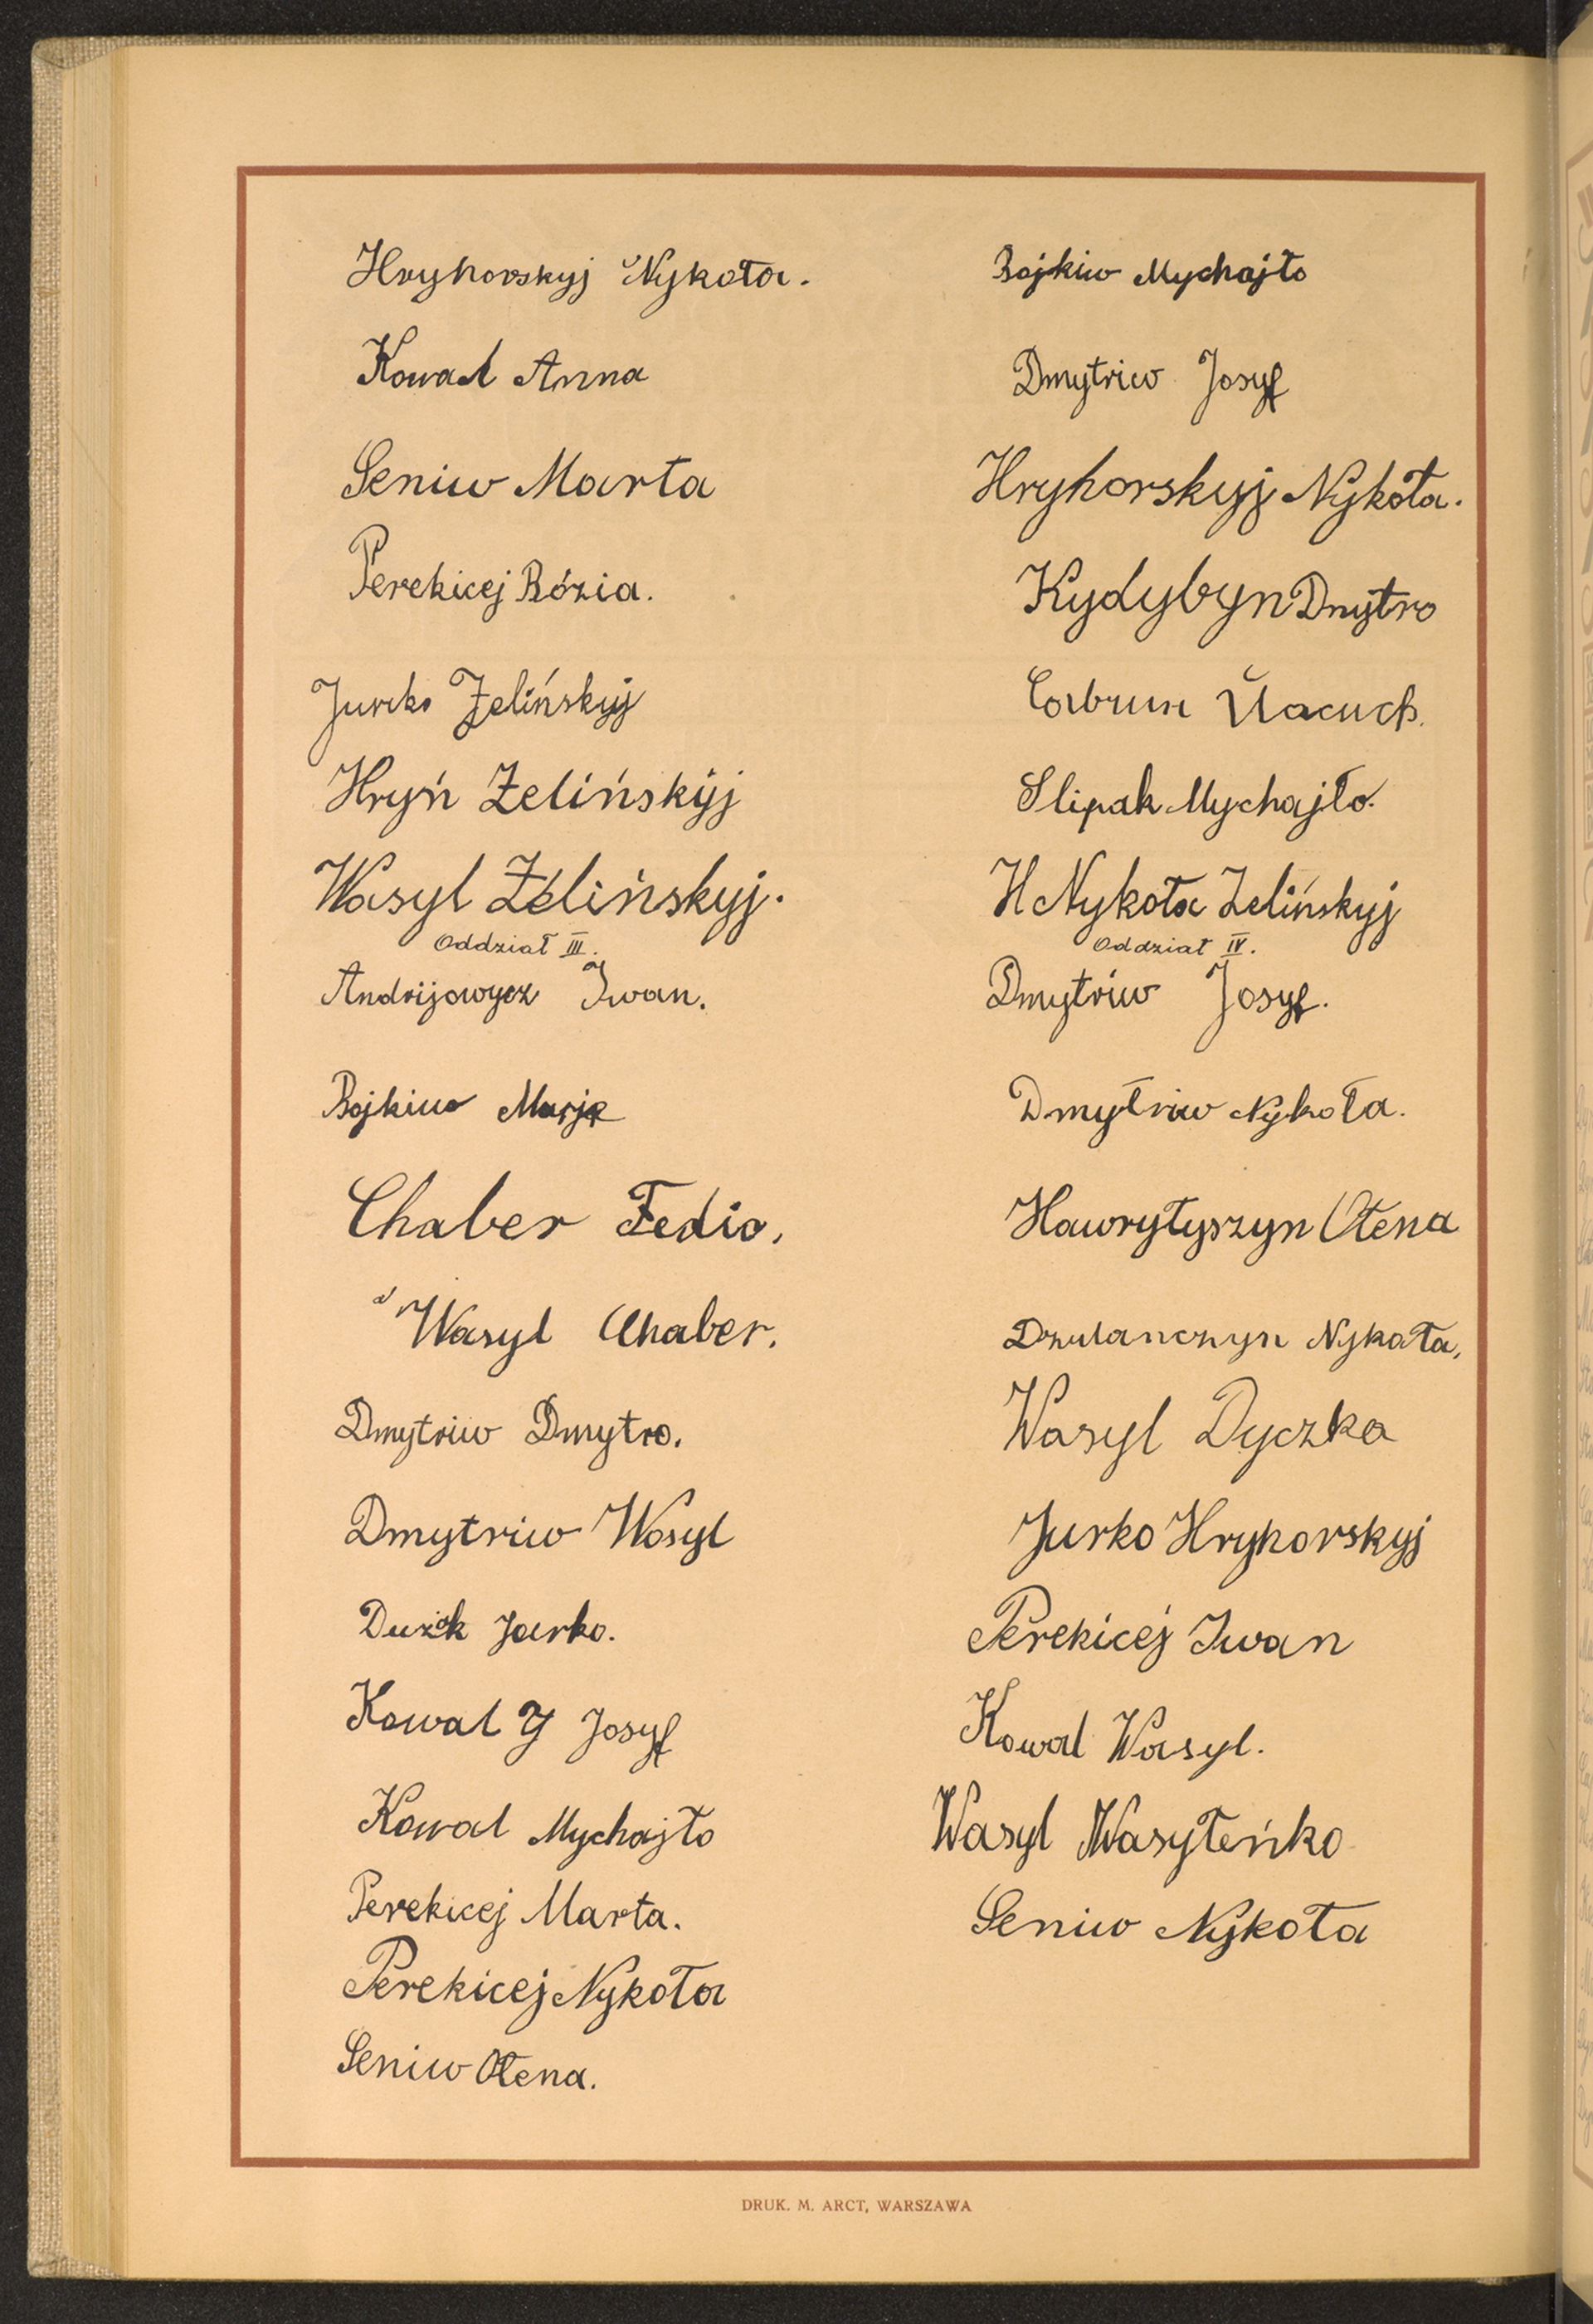 Hryhorskyj Nykoła.
Kowal Anna
Seniw Marta
Perekicej Rózia.
Jurcko Żelińskyj
Hryń Żelińskyj
Wasyl Żelińskyj.
Oddział III.
Andrijowycz Iwan.
Bojkiw Marja
Chaber Fedio.
Wasyl Chaber.
Dmytriw Dmytro.
Dmytriw Wasyl
Jurko.
Kowal J Josyf
Kowal Mychajło
Perekicej Marta.
Perekicej Nykoła
Seniw Ołena.
Bojkiw Mychajło
Dmytriw Josyf
Hryhorskyj Nykoła.
Kydybyn Dmytro
Slipak Mychajło.
H Nykoła Zelińskyj
Oddział IV.
Dmytriw Josyf.
Dmytriw Nykoła.
Hawryłyszyn Ołena
Dzulanczyn Nykoła,
Wasyl Dyczka
Jurko Hryhorskyj
Perekicej Iwan
Kowal Wasyl.
Wasyl Wasyłeńko
Seniw Nykoła
DRUK. M. ARCT, WARSZAWA